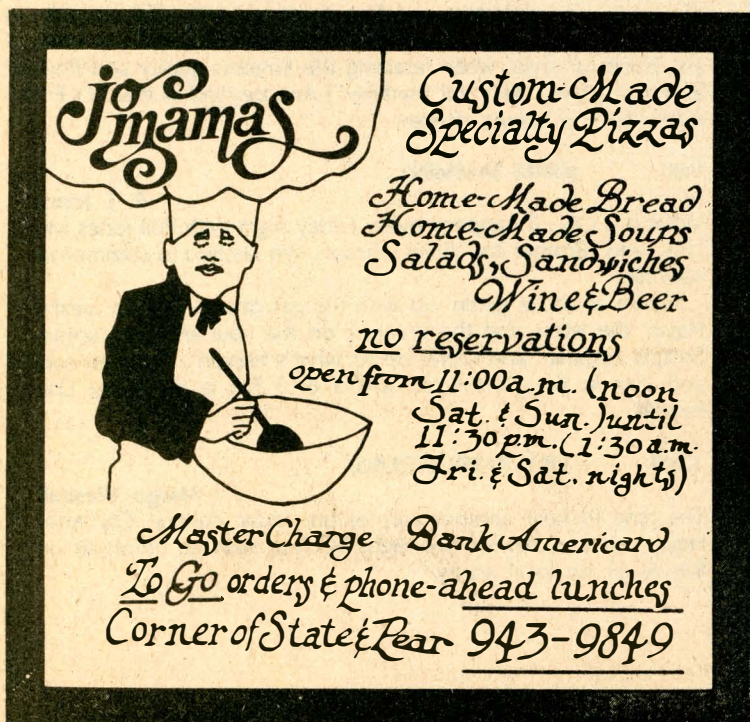 jo mamas
Custom-Made
Specialty Pizzas
Home-Made Bread
Home-Made Soups
Salads, Sandwiches
Wine & Beer
no reservations
open from 11:00 a.m. (noon
Sat. & Sun.) until
11:30 pm. (1:30 a.m.
Fri. & Sat. nights)
Master Charge Bank Americard
To Go orders & phone-ahead lunches
Corner of State & Pear 943-9849